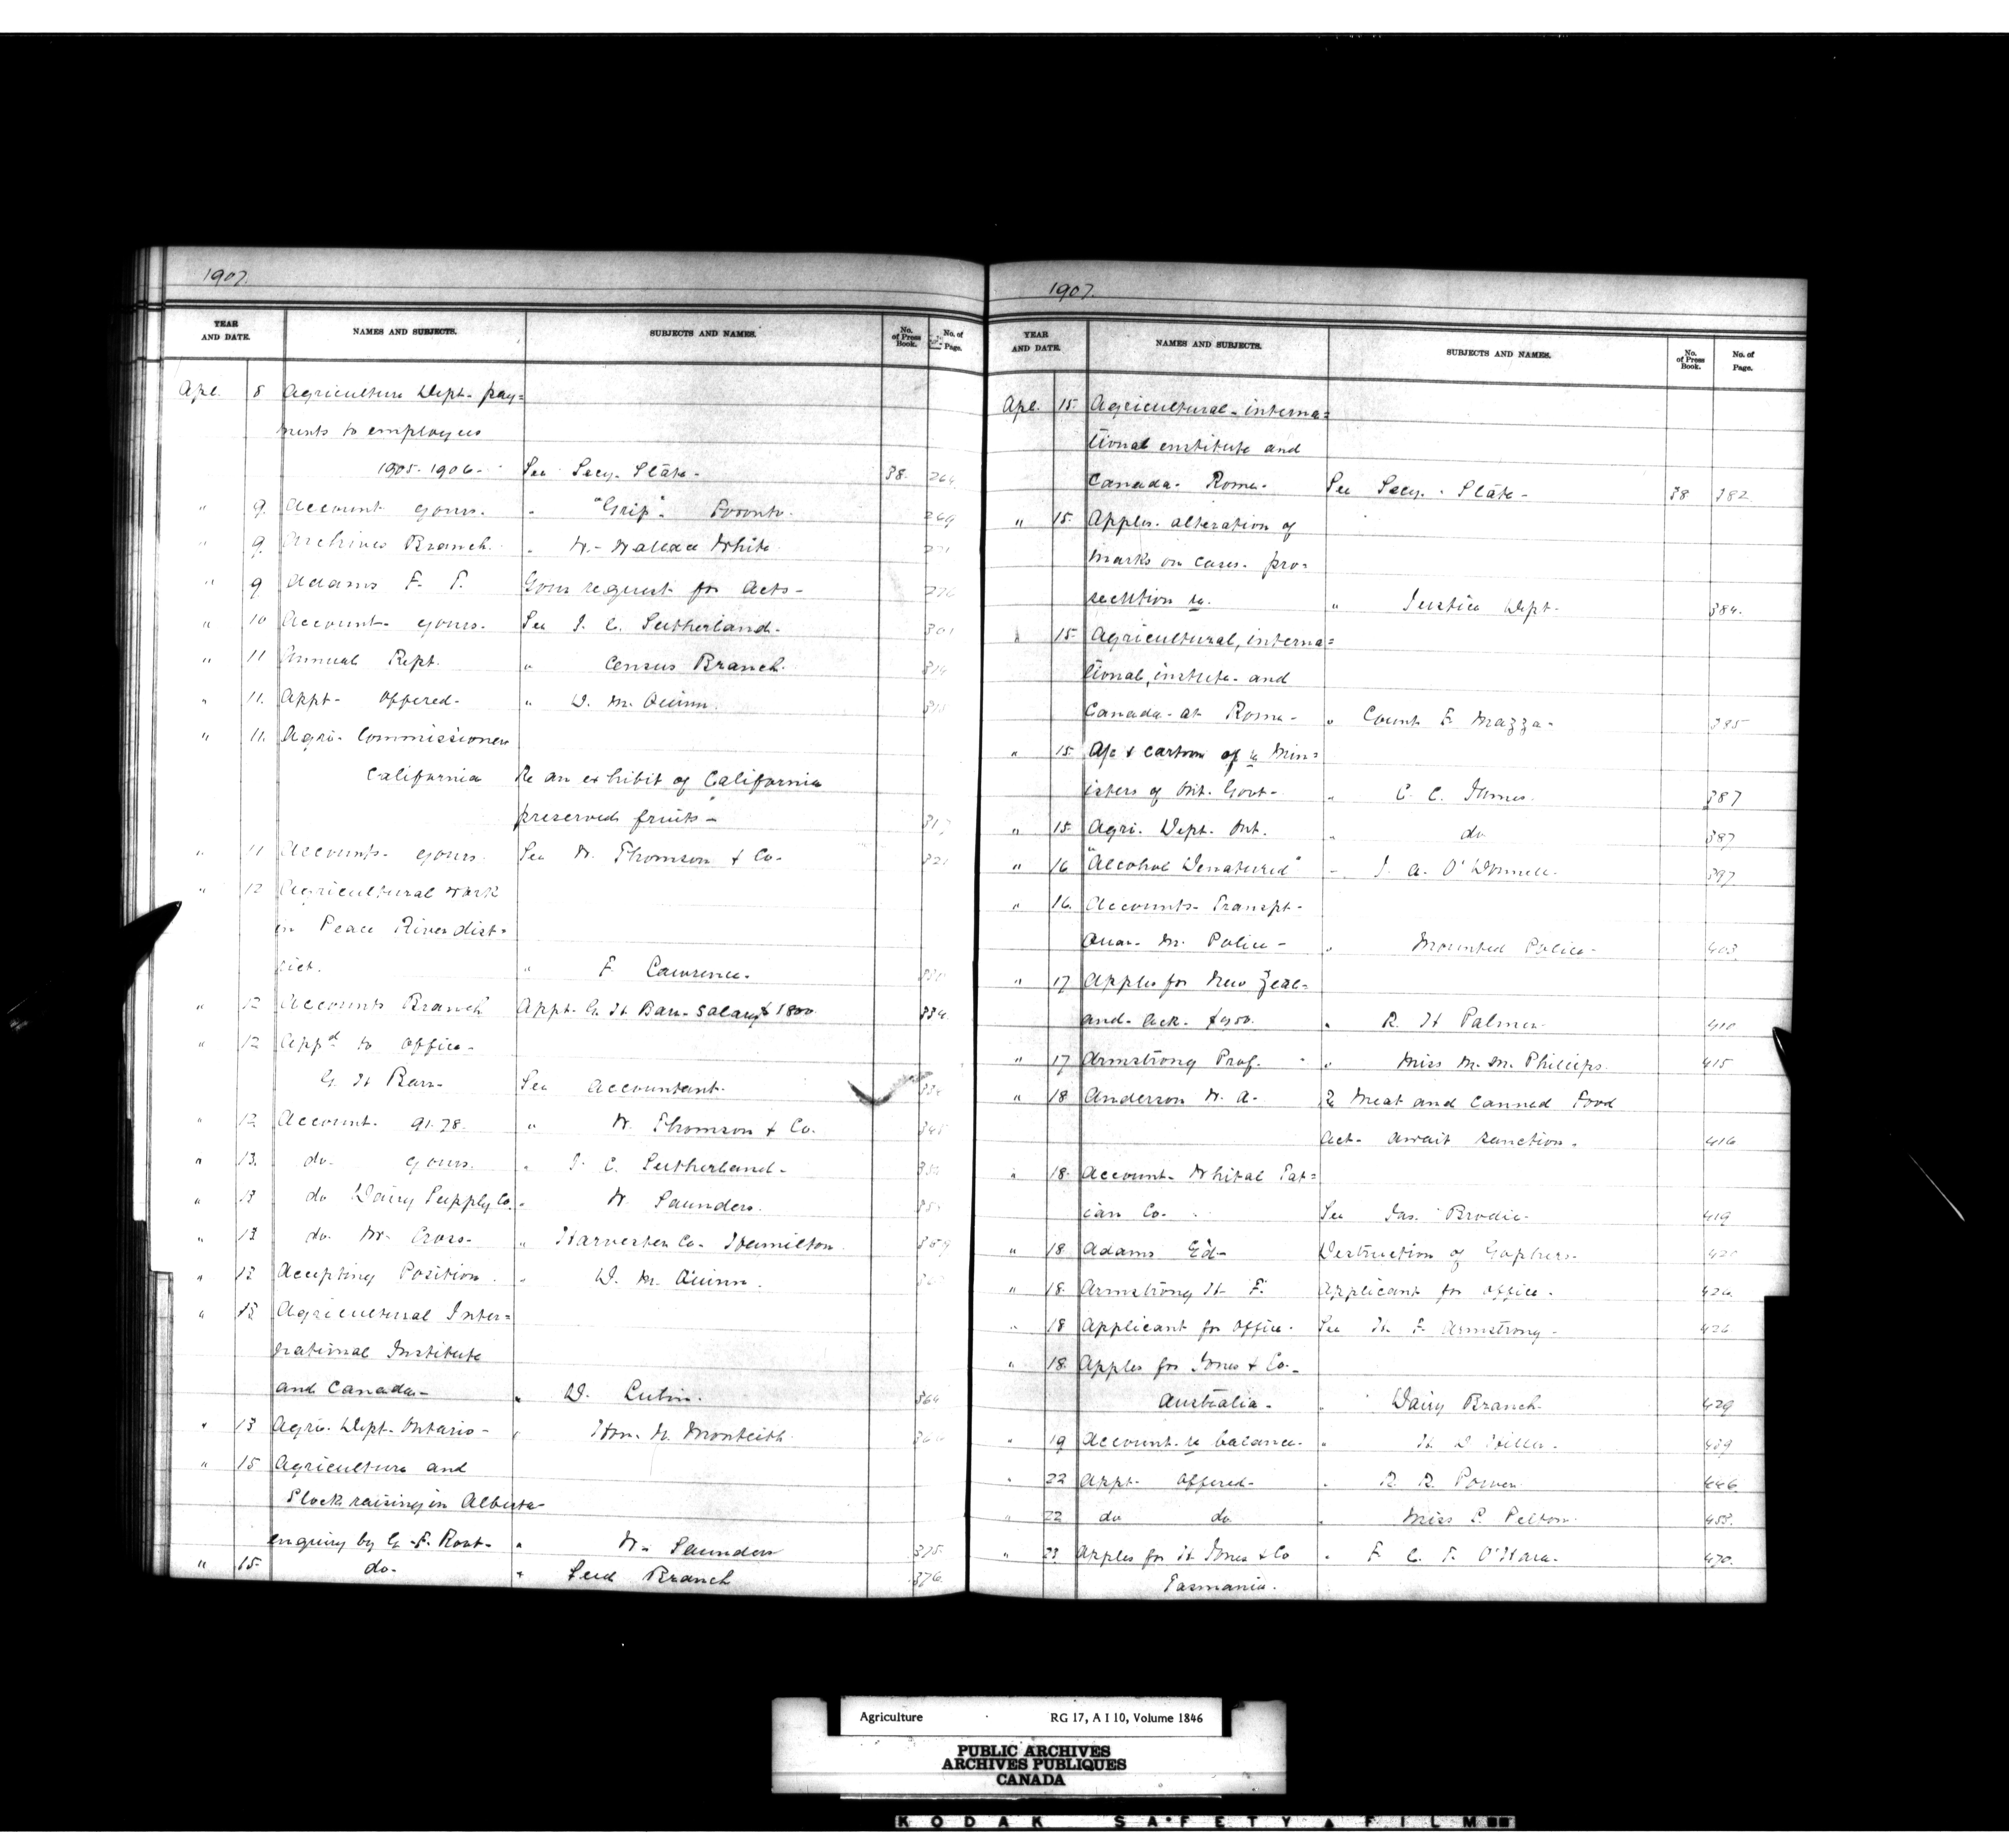 1907.
YEAR AND DATE. NAMES AND SUBJECTS. SUBJECTS AND NAMES. No. of Press Book. No. of Page.
Apl. 8 Agriculture Dept- pay=
ments to employees
1905-1906- See Secy. State- 38. 264
" 9. Account yours. " "Grip". Toronto. 269
" 9. Archives Branch. " W. Wallace White
" 9 Adams F. T. Your request for Acts- 276
" 10 Account- yours. See J. C. Sutherland. 301
" 11 Annual Rept. " Census Branch. 314
" 11. Appt- offered- " D. M. Quinn.
" 11. Agri- Commissioner
California Re an exhibit of California
preserved fruits- 317
" 11 Accounts- yours. See W. Thomson & Co- 321
" 12 Agricultural work
in Peace River dist-
rict. " F. Lawrence.
" 12 Accounts Branch Appt- G. H. Barr- Salary $1800. 334
" 12 Appd to office-
G. H. Barr- See Accountant. 334
" 12. Account. 91.78. " W. Thomson & Co. 345
" 13. do. yours. " J. C. Sutherland-
" 13 do Dairy Supply Co. " W. Saunders.
" 13 do. W. Cross- " Harvester Co- Hamilton. 359
" 13 Accepting Position. " D. M. Quinn.
" 13 Agricultural Inter=
national Institute
and Canada- " D. Lubin. 364
" 13 Agri. Dept- Ontario- " Hon. N. Monteith.
" 15 Agriculture and
Stock raising in Alberta-
enquiry by G. F. Root- " W. Saunders 375.
" 15. do- " Seed Branch 376.
1907.
YEAR AND DATE. NAMES AND SUBJECTS. SUBJECTS AND NAMES. No. of Press Book. No. of Page.
Apl. 15. Agricultural- interna=
tional institute and
Canada- Rome- See Secy. State- 38 382
" 15. Apples- alteration of
marks on cases- pro-
secution re. " Justice Dept- 384.
" 15- Agricultural, interna=
tional, institute- and
Canada- at Rome- " Count F. Mazza- 385
" 15. A/c & cartoon of re Min=
isters of Ont. Govt- " C. C. James. 387
" 15. Agri. Dept. Ont. " do 387
" 16 "Alcohol Denatured" - J. A. O'Donnell. 397
" 16. Accounts- Transpt-
Quar- M. Police- " Mounted Police- 403.
" 17 Apples for New Zeal-
and- ack- $950. " R. H Palmer 410
" 17 Armstrong Prof. " " Miss M. M. Phillips. 415
" 18 Anderson W. A. Re Meat and Canned Food
Act- await sanction. 416
" 18. Account- Whital Tat=
ian Co- See Jas. Brodie- 419
" 18. Adams Ed- Destruction of Gophers- 420
" 18. Armstrong H- F. Applicant for office-
" 18 Applicant for office- See H. F. Armstrong- 426
" 18. Apples for Jones & Co.
Australia- " Dairy Branch. 429
" 19 Account- re balance- " H. D. Hiller. 439
" 22 Appt- offered- " R. R. Power 446
" 22 do do " Miss P. Pelton. 458.
" 23 Apples for H Jones & Co " F. C. T. O'Hara. 470.
Tasmania.
Agriculture RG 17, A I 10, Volume 1846
PUBLIC ARCHIVES
ARCHIVES PUBLIQUES
CANADA
KODAK SAFETY FILM